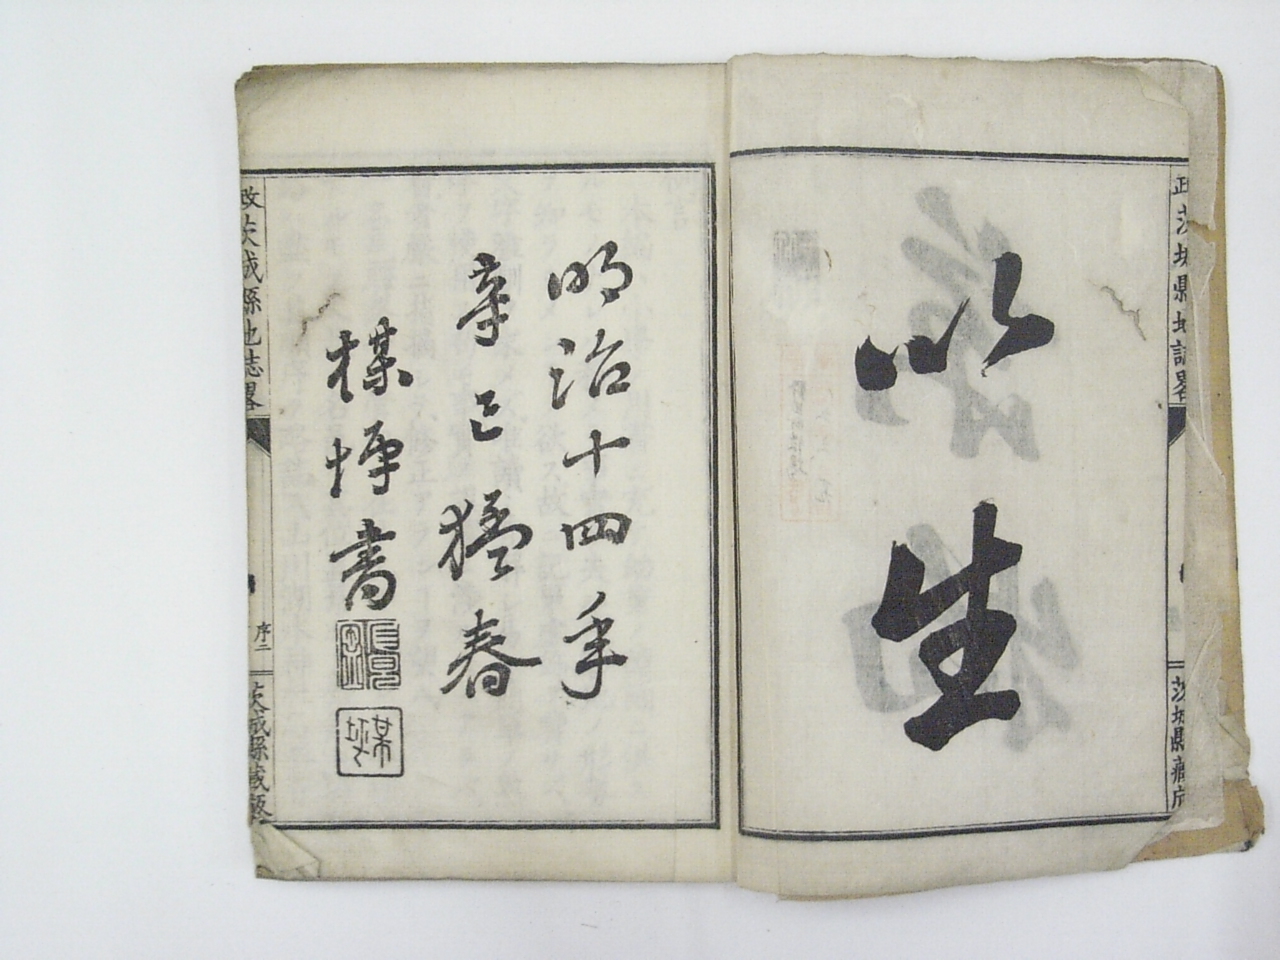 正茨城縣地誌畧
茨城縣藏版
以生
明治十四年
辛巳猛春
楳坪書
改茨城縣地誌畧
序二
茨城縣藏版